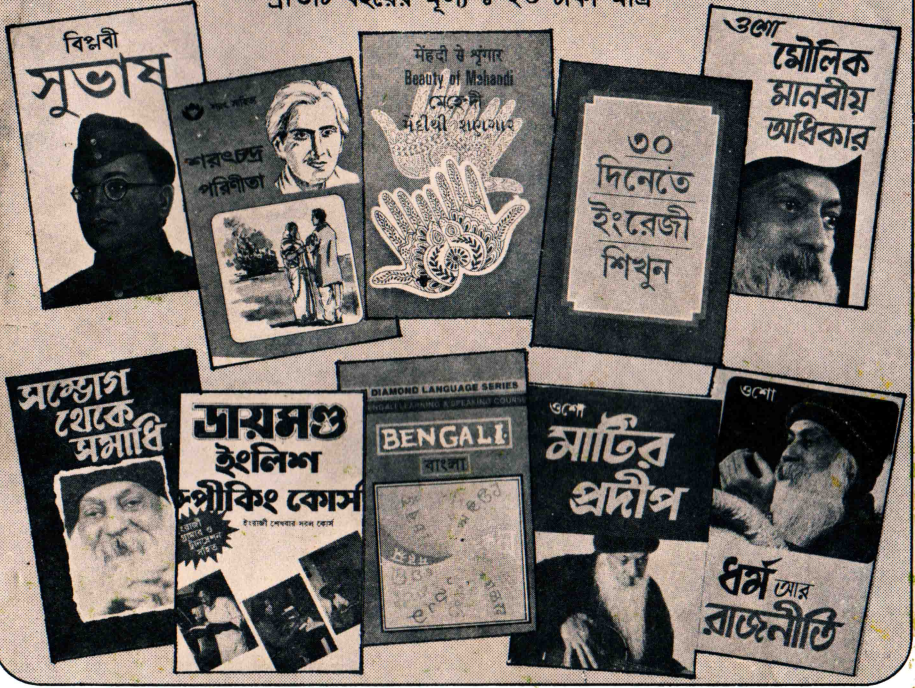 প্রতিটি বইয়ের মূল্য ঃ ২০ টাকা মাত্র
বিপ্লবী
সুভাষ
শরৎ সাহিত্য
শরৎচন্দ্র
পরিণীতা
मेंहदी से शृंगार
Beauty of Mahandi
মেহেন্দী
મેંદીથી શણગાર
৩০
দিনেতে
ইংরেজী
শিখুন
ওশো
মৌলিক
মানবীয়
অধিকার
সম্ভোগ
থেকে
সমাধি
ডায়মণ্ড
ইংলিশ
স্পীকিং কোর্স
ইংরাজী শেখবার সরল কোর্স
DIAMOND LANGUAGE SERIES
BENGALI LEARNING & SPEAKING COURSE
BENGALI
বাংলা
ওশো
মাটির
প্রদীপ
ওশো
ধর্ম আর
রাজনীতি